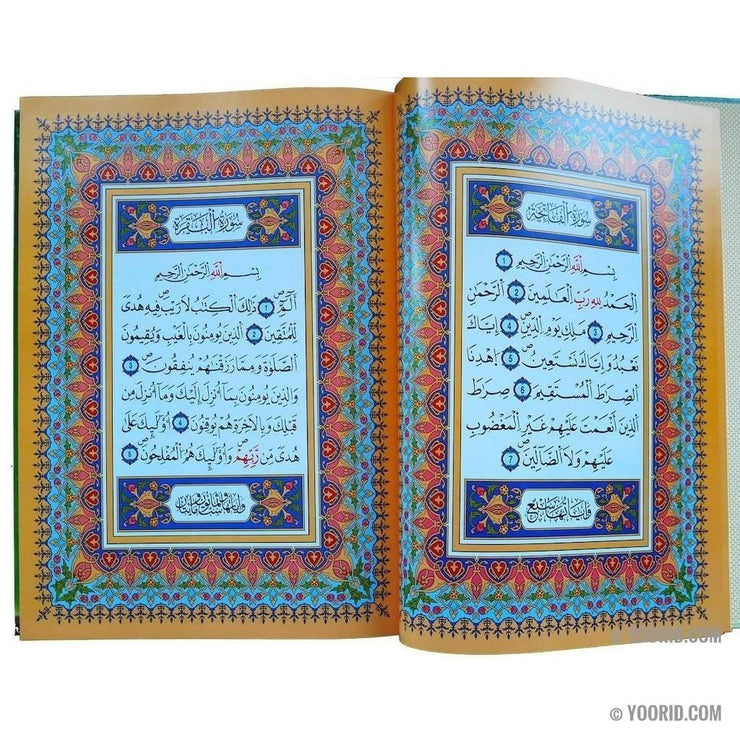 سورة الفاتحة
بِسْمِ اللَّهِ الرَّحْمَٰنِ الرَّحِيمِ 1
الْحَمْدُ لِلَّهِ رَبِّ الْعَٰلَمِينَ 2 الرَّحْمَٰنِ
الرَّحِيمِ 3 مَٰلِكِ يَوْمِ الدِّينِ 4 إِيَّاكَ
نَعْبُدُ وَإِيَّاكَ نَسْتَعِينُ 5 اهْدِنَا
الصِّرَٰطَ الْمُسْتَقِيمَ 6 صِرَٰطَ
الَّذِينَ أَنْعَمْتَ عَلَيْهِمْ غَيْرِ الْمَغْضُوبِ
عَلَيْهِمْ وَلَا الضَّالِّينَ 7
وآياتها سبع
سورة البقرة
بِسْمِ اللَّهِ الرَّحْمَٰنِ الرَّحِيمِ
الٓمٓ 1 ذَٰلِكَ الْكِتَٰبُ لَا رَيْبَ فِيهِ هُدًى
لِّلْمُتَّقِينَ 2 الَّذِينَ يُؤْمِنُونَ بِالْغَيْبِ وَيُقِيمُونَ
الصَّلَوٰةَ وَمِمَّا رَزَقْنَٰهُمْ يُنفِقُونَ 3
وَالَّذِينَ يُؤْمِنُونَ بِمَا أُنزِلَ إِلَيْكَ وَمَا أُنزِلَ مِن
قَبْلِكَ وَبِالْآخِرَةِ هُمْ يُوقِنُونَ 4 أُو۟لَٰئِكَ عَلَىٰ
هُدًى مِّن رَّبِّهِمْ وَأُو۟لَٰئِكَ هُمُ الْمُفْلِحُونَ 5
© YOORID.COM
© YOORID.COM